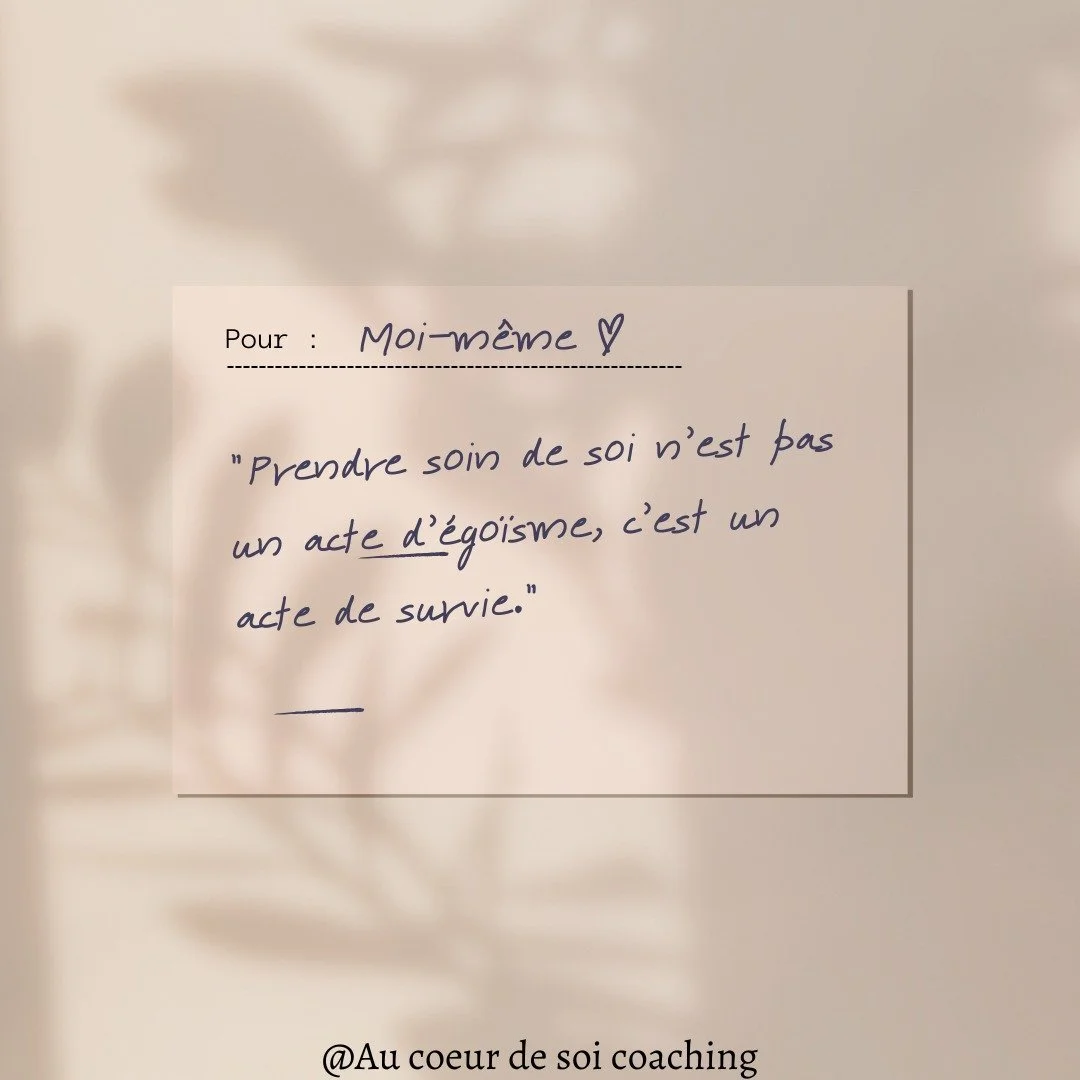 Pour : Moi-même ♡
"Prendre soin de soi n'est pas
un acte d'égoïsme, c'est un
acte de survie."
@Au coeur de soi coaching